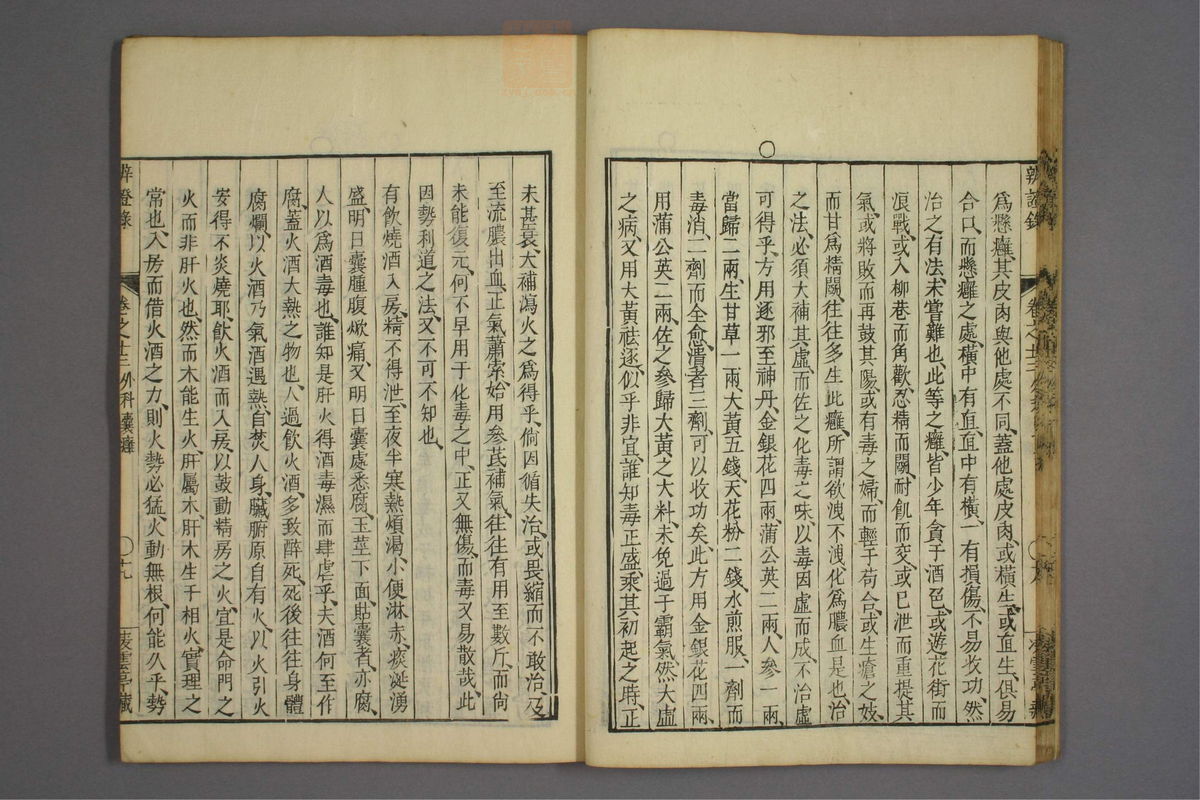 辨證錄
卷之十三
爲懸癰其皮肉與他處不同蓋他處皮肉或橫生或直生俱易
合口而懸癰之處橫中有直直中有橫一有損傷不易收功然
治之有法未嘗難也此等之癰皆少年貪于酒色或遊花街而
浪戰或入柳巷而角歡忍精而鬭耐飢而交或已泄而重提其
氣或將敗而再鼓其陽或有毒之婦而輕于苟合或生瘡之妓
而甘爲精鬭往往多生此癰所謂欲洩不洩化爲膿血是也治
之法必須大補其虛而佐之化毒之味以毒因虛而成不治虛
可得乎方用逐邪至神丹金銀花四兩蒲公英二兩人參一兩
當歸二兩生甘草一兩大黃五錢天花粉二錢水煎服一劑而
毒消二劑而全愈潰者三劑可以收功矣此方用金銀花四兩
用蒲公英二兩佐之參歸大黃之大料未免過于霸氣然大虛
之病又用大黃祛逐似乎非宜誰知毒正盛乘其初起之時正
未甚衰大補瀉火之爲得乎倘因循失治或畏縮而不敢治及
至流膿出血正氣蕭索始用參芪補氣往往有用至數斤而尚
未能復元何不早用于化毒之中正又無傷而毒又易散哉此
因勢利道之法又不可不知也
有飲燒酒入房精不得泄至夜半寒熱煩渴小便淋赤痰涎湧
盛明日囊腫腹焮痛又明日囊處悉腐玉莖下面貼囊者亦腐
人以爲酒毒也誰知是肝火得酒毒濕而肆虐乎夫酒何至作
腐蓋火酒大熱之物也人過飲火酒多致醉死死後往往身體
腐爛以火酒乃氣酒遇熱自焚人身臟腑原自有火以火引火
安得不炎燒耶飲火酒而入房以鼓動精房之火宜是命門之
火而非肝火也然而木能生火肝屬木肝木生于相火實理之
常也入房而借火酒之力則火勢必猛火動無根何能久乎勢
辨證錄
卷之十三 外科囊癰
十九
菱雲亭藏